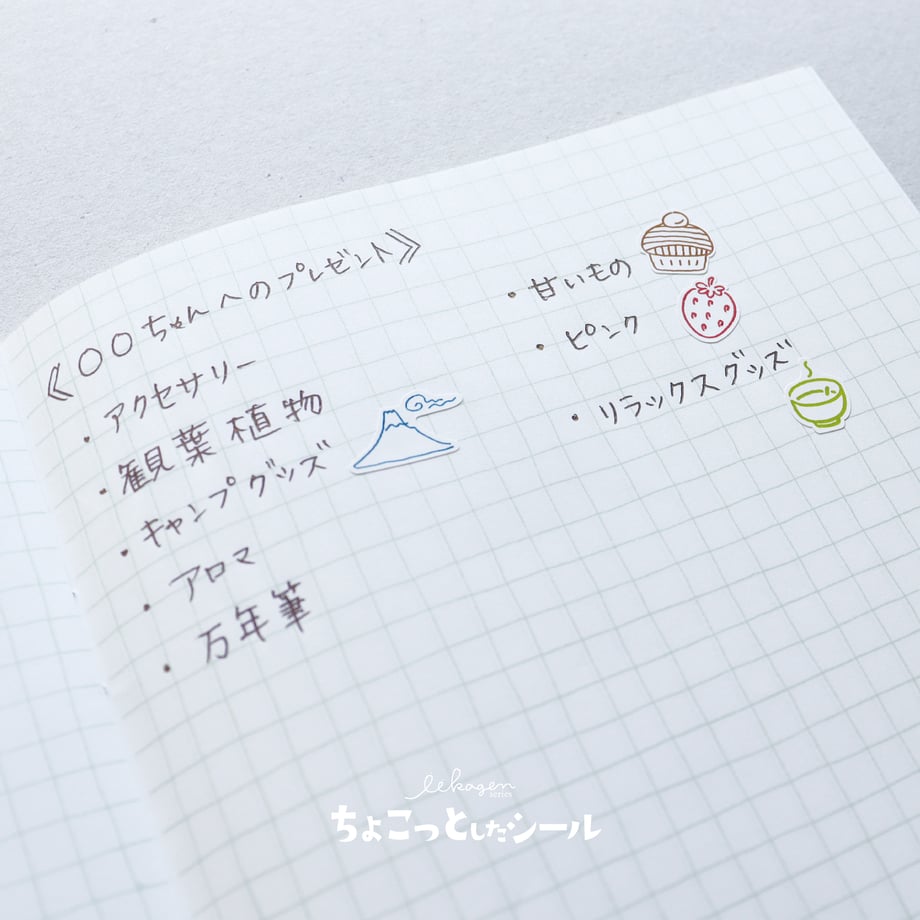 《〇〇ちゃんへのプレゼント》
・アクセサリー
・観葉植物
・キャンプグッズ
・アロマ
・万年筆
・甘いもの
・ピンク
・リラックスグッズ
iikagen
series
ちょこっとしたシール